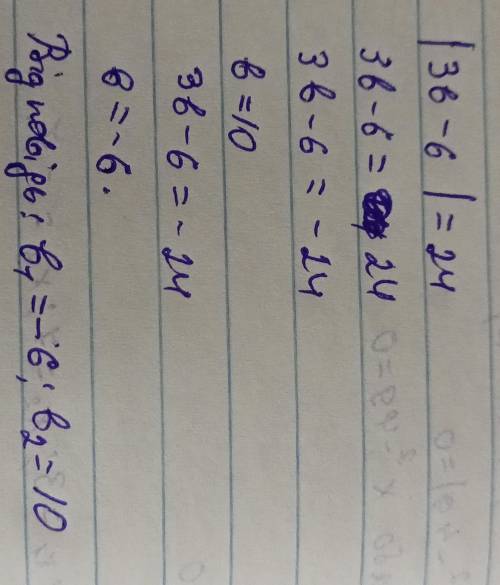 |3b-6|=24
3b-6=24
3b-6=-24
b=10
3b-6=-24
b=-6.
Відповідь: b₁=-6; b₂=10